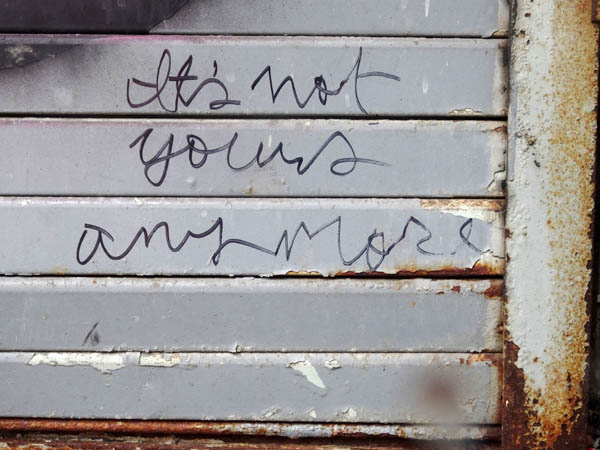 It's not
yours
anymore